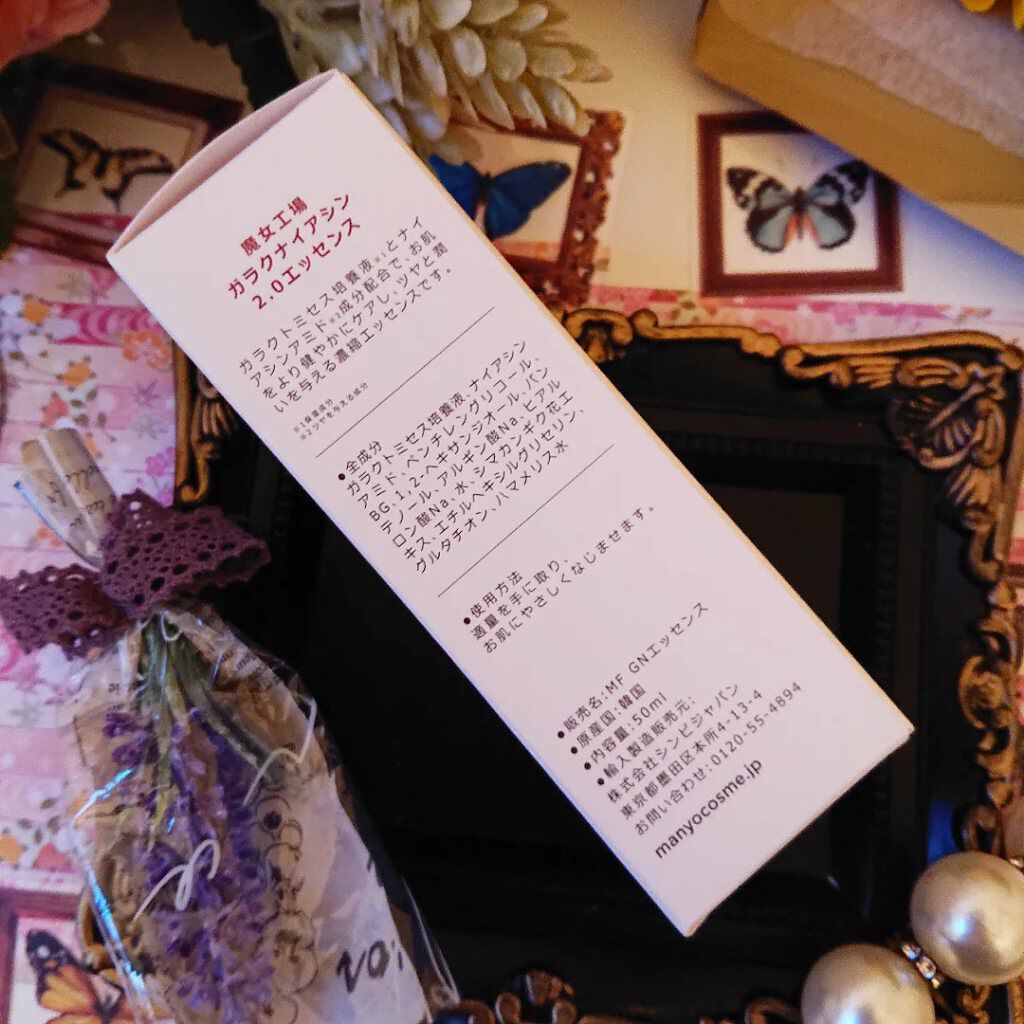 魔女工場
ガラクナイアシン
2.0エッセンス
ガラクトミセス培養液※1とナイ
アシンアミド※2成分配合で、お肌
をより健やかにケアし、ツヤと潤
いを与える濃縮エッセンスです。
※1保湿成分
※2ツヤを与える成分
●全成分
ガラクトミセス培養液、ナイアシン
アミド、ペンチレングリコール、
BG、1,2-ヘキサンジオール、パン
テノール、アルギン酸Na、ヒアル
ロン酸Na、水、シマカンギク花エ
キス、エチルヘキシルグリセリン、
グルタチオン、ハマメリス水
●使用方法
適量を手に取り、
お肌にやさしくなじませます。
●販売名:MF GNエッセンス
●原産国:韓国
●内容量:50ml
●輸入製造販売元:
株式会社シンビジャパン
東京都墨田区本所4-13-4
お問い合わせ:0120-55-4894
manyocosme.jp